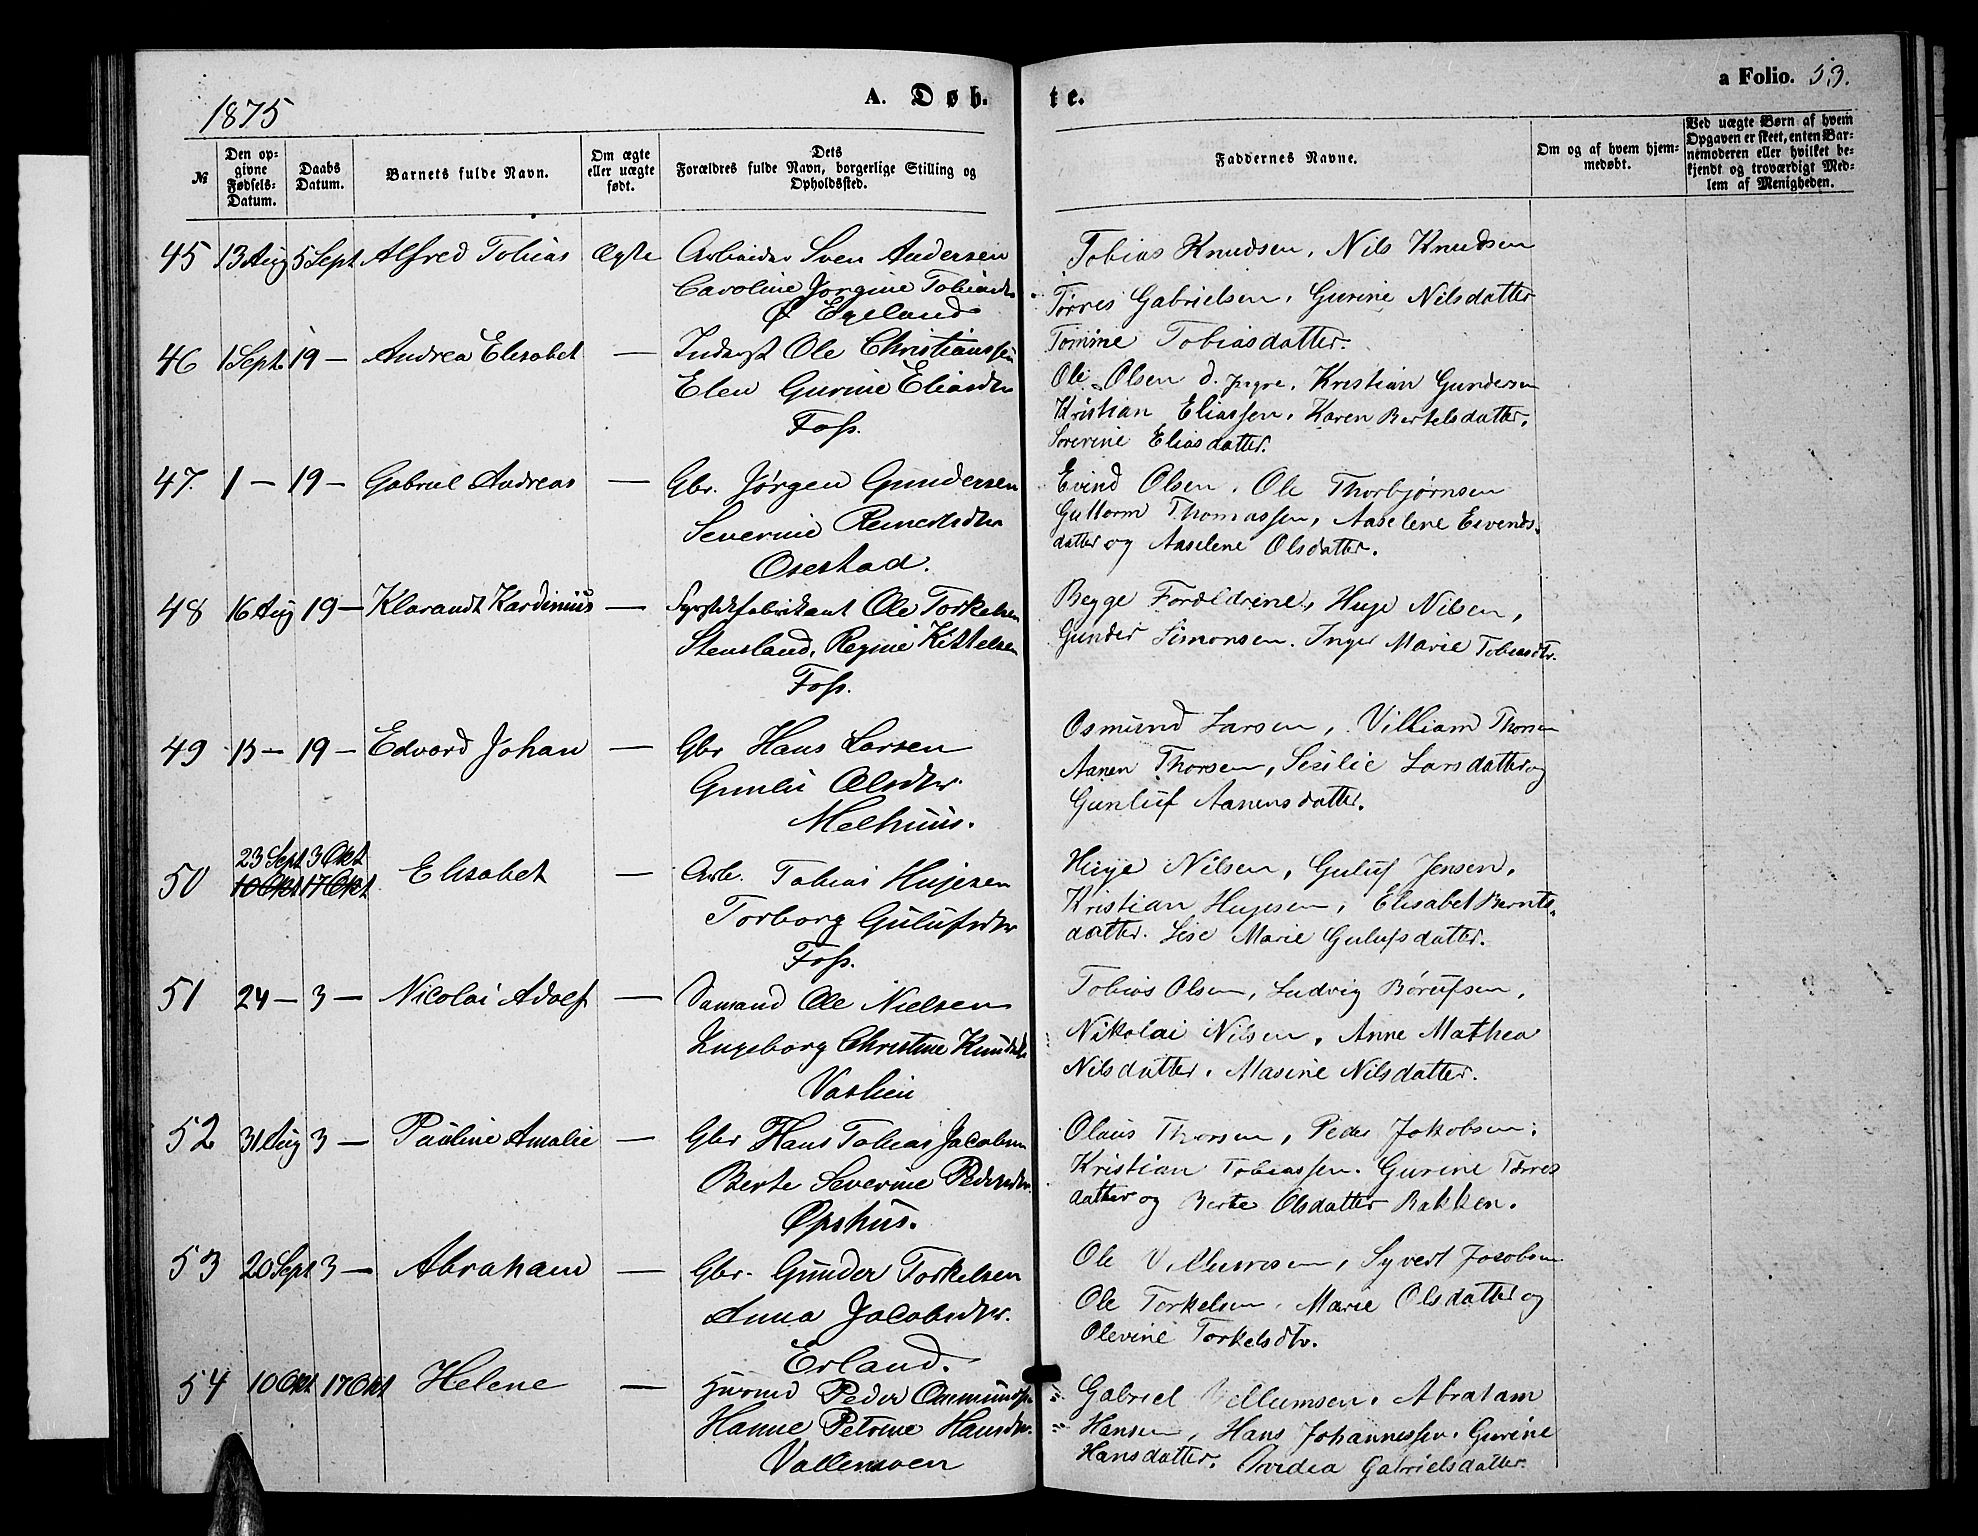 1875
A. Døb-
te.
a Folio. 53.
№
Den op-
givne
Fødsels-
Datum.
Daabs
Datum.
Barnets fulde Navn.
Om ægte
eller uægte
født.
Dets
Forældres fulde Navn, borgerlige Stilling og
Opholdssted.
Faddernes Navne.
Om og af hvem hjem-
medøbt.
Ved uægte Børn af hvem
Opgaven er skeet, enten Bar-
nemoderen eller hvilket be-
kjendt og troværdigt Med-
lem af Menigheden.
45 13 Aug 5 Sept. Alfred Tobias Ægte Arbeider Sven Andersen
Caroline Jorgine Tobiasdtr
Ø Egeland
Tobias Knudsen, Nils Knudsen
Tørres Gabrielsen, Gurine Nilsdatter
Tomine Tobiasdatter.
46 1 Sept. 19 — Andrea Elisabet — Inderst Ole Christianssen
Elen Gurine Eliasdtr
Foss.
Ole Olsen d. yngre, Kristian Gundersen
Kristian Eliassen, Karen Bertelsdatter,
Severine Eliasdatter.
47. 1 — 19 — Gabriel Andreas — Gbr. Jørgen Gundersen
Severine
Osestad.
Evind Olsen, Ole Thorbjørnsen
Guttorm Thomassen, Aaselene Eivends-
datter og Aaselene Olsdatter.
48 16 Aug 19 — Klarandt Kardinius — Ole Torkelsen
Stensland, Regine Kittelsen
Foss.
Begge Forældrene, Huje Nilsen,
Gunder Simonsen. Inger Marie Tobiasdtr.
49 15 — 19 — Edvard Johan — Gbr Hans Larsen
Gunlu Olsdtr.
Melhuus.
Osmund Larsen, Villiam Thorsen
Aanen Thorsen, Sesilie Larsdatter og
Gunluf Aanensdatter.
23 Sept 3 Okt
50 10 Okt 17 Okt Elisabet — Arb. Tobias Hujesen
Torborg Gulufsdtr
Foss.
Huje Nilsen, Guluf Jensen,
Kristian Hujesen, Elisabet Bernts-
datter. Lise Marie Gulufsdatter.
51 24 — 3 — Nicolai Adolf — Ole Nielsen
Ingeborg Christine Knudsdtr
Vatlien
Tobias Olsen, Ludvig Børufsen,
Nikolai Nilsen, Anne Mathea
Nilsdatter, Masine Nilsdatter.
52 31 Aug 3 — Pauline Amalie — Gbr Hans Tobias Jacobsen
Berte Severine Pedersdtr.
Opshus.
Olaus Thorsen, Peder Jakobsen,
Kristian Tobiassen. Gurine Tørres
datter og Berte Olsdatter Bakken.
53 20 Sept 3 — Abraham — Gbr. Gunder Torkelsen
Anna Jacobsdtr.
Erland.
Ole Villumsen, Syvert Jacobsen
Ole Torkelsen, Marie Olsdatter og
Olevine Torkelsdtr.
54 10 Okt 17 Okt Helene — Huusmd Peder Osmundsen
Hanne Petrine Hansdtr.
Vallemoen
Gabriel Villumsen, Abraham
Hansen, Hans Johannessen. Gurine
Hansdatter. Gabrielsdatter.